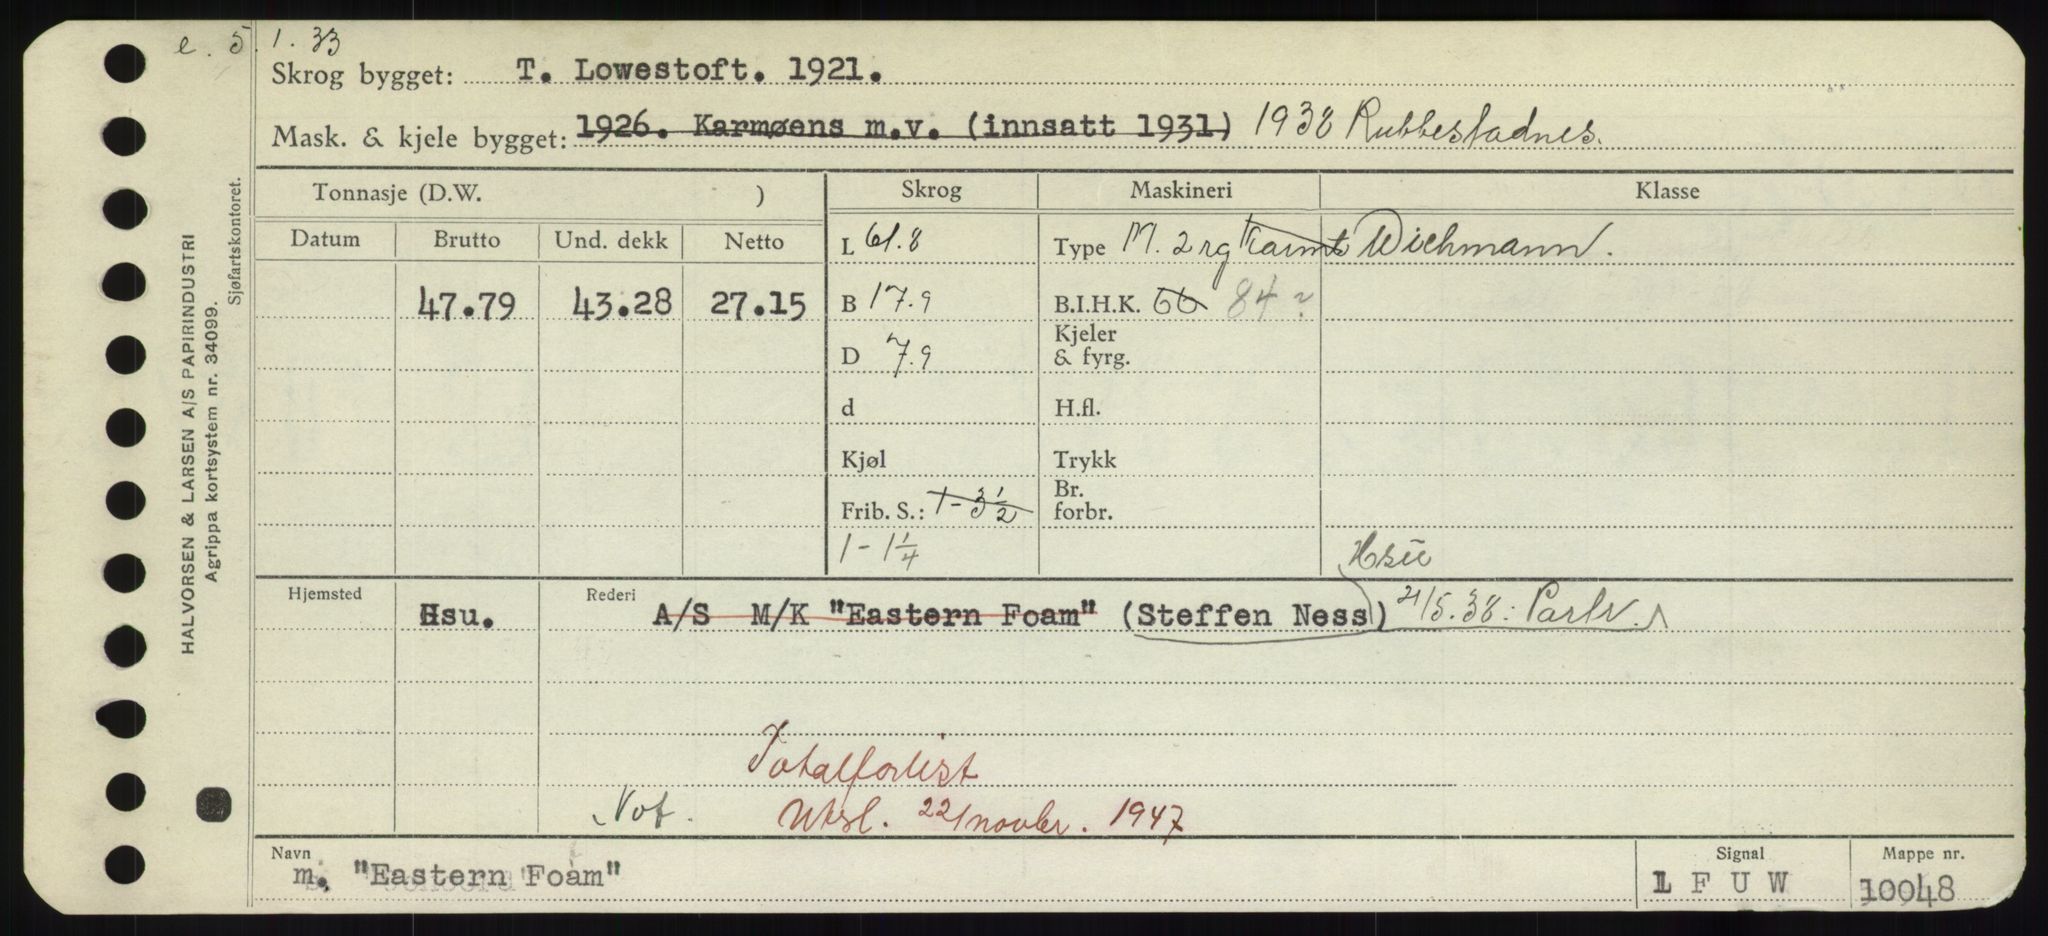 e. 5.1.33
Skrog bygget: T. Lowestoft. 1921.
Mask. & kjele bygget: 1926. Karmøens m.v. (innsatt 1931) 1938 Rubbestadnes.
Tonnasje (D.W. )
Skrog
Maskineri
Klasse
Datum Brutto Und. dekk Netto
47.79 43.28 27.15
L 61.8
B 17.9
D 7.9
d
Kjøl
Frib. S.: 1-3½
1-1¼
Type M. 2 rg Wichmann.
B.I.H.K. 66 84?
Kjeler
& fyrg.
H.fl.
Trykk
Br.
forbr.
Hjemsted Hsu.
Rederi A/S M/K "Eastern Foam" (Steffen Ness) 21/5.38: Partr.
Totalforlist
Not. Utsl. 22/novbr. 1947
Navn
m. "Eastern Foam"
Signal
L F U W
Mappe nr.
10048
HALVORSEN & LARSEN A/S PAPIRINDUSTRI
Agrippa kortsystem nr. 34099.
Sjøfartskontoret.